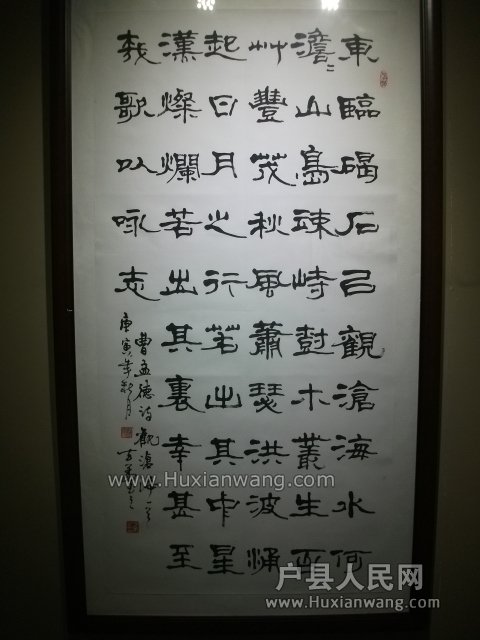 東臨碣石㠯觀滄海水何
澹二山島竦峙尌木叢生百
艸豐茂秋風蕭瑟洪波涌
起日月之行若出其中星
漢燦爛若出其裏幸甚至
哉歌以詠志
曹孟德诗观滄海一首
庚寅年秋月
www.Huxianwang.com
户县人民网
www.Huxianwang.com